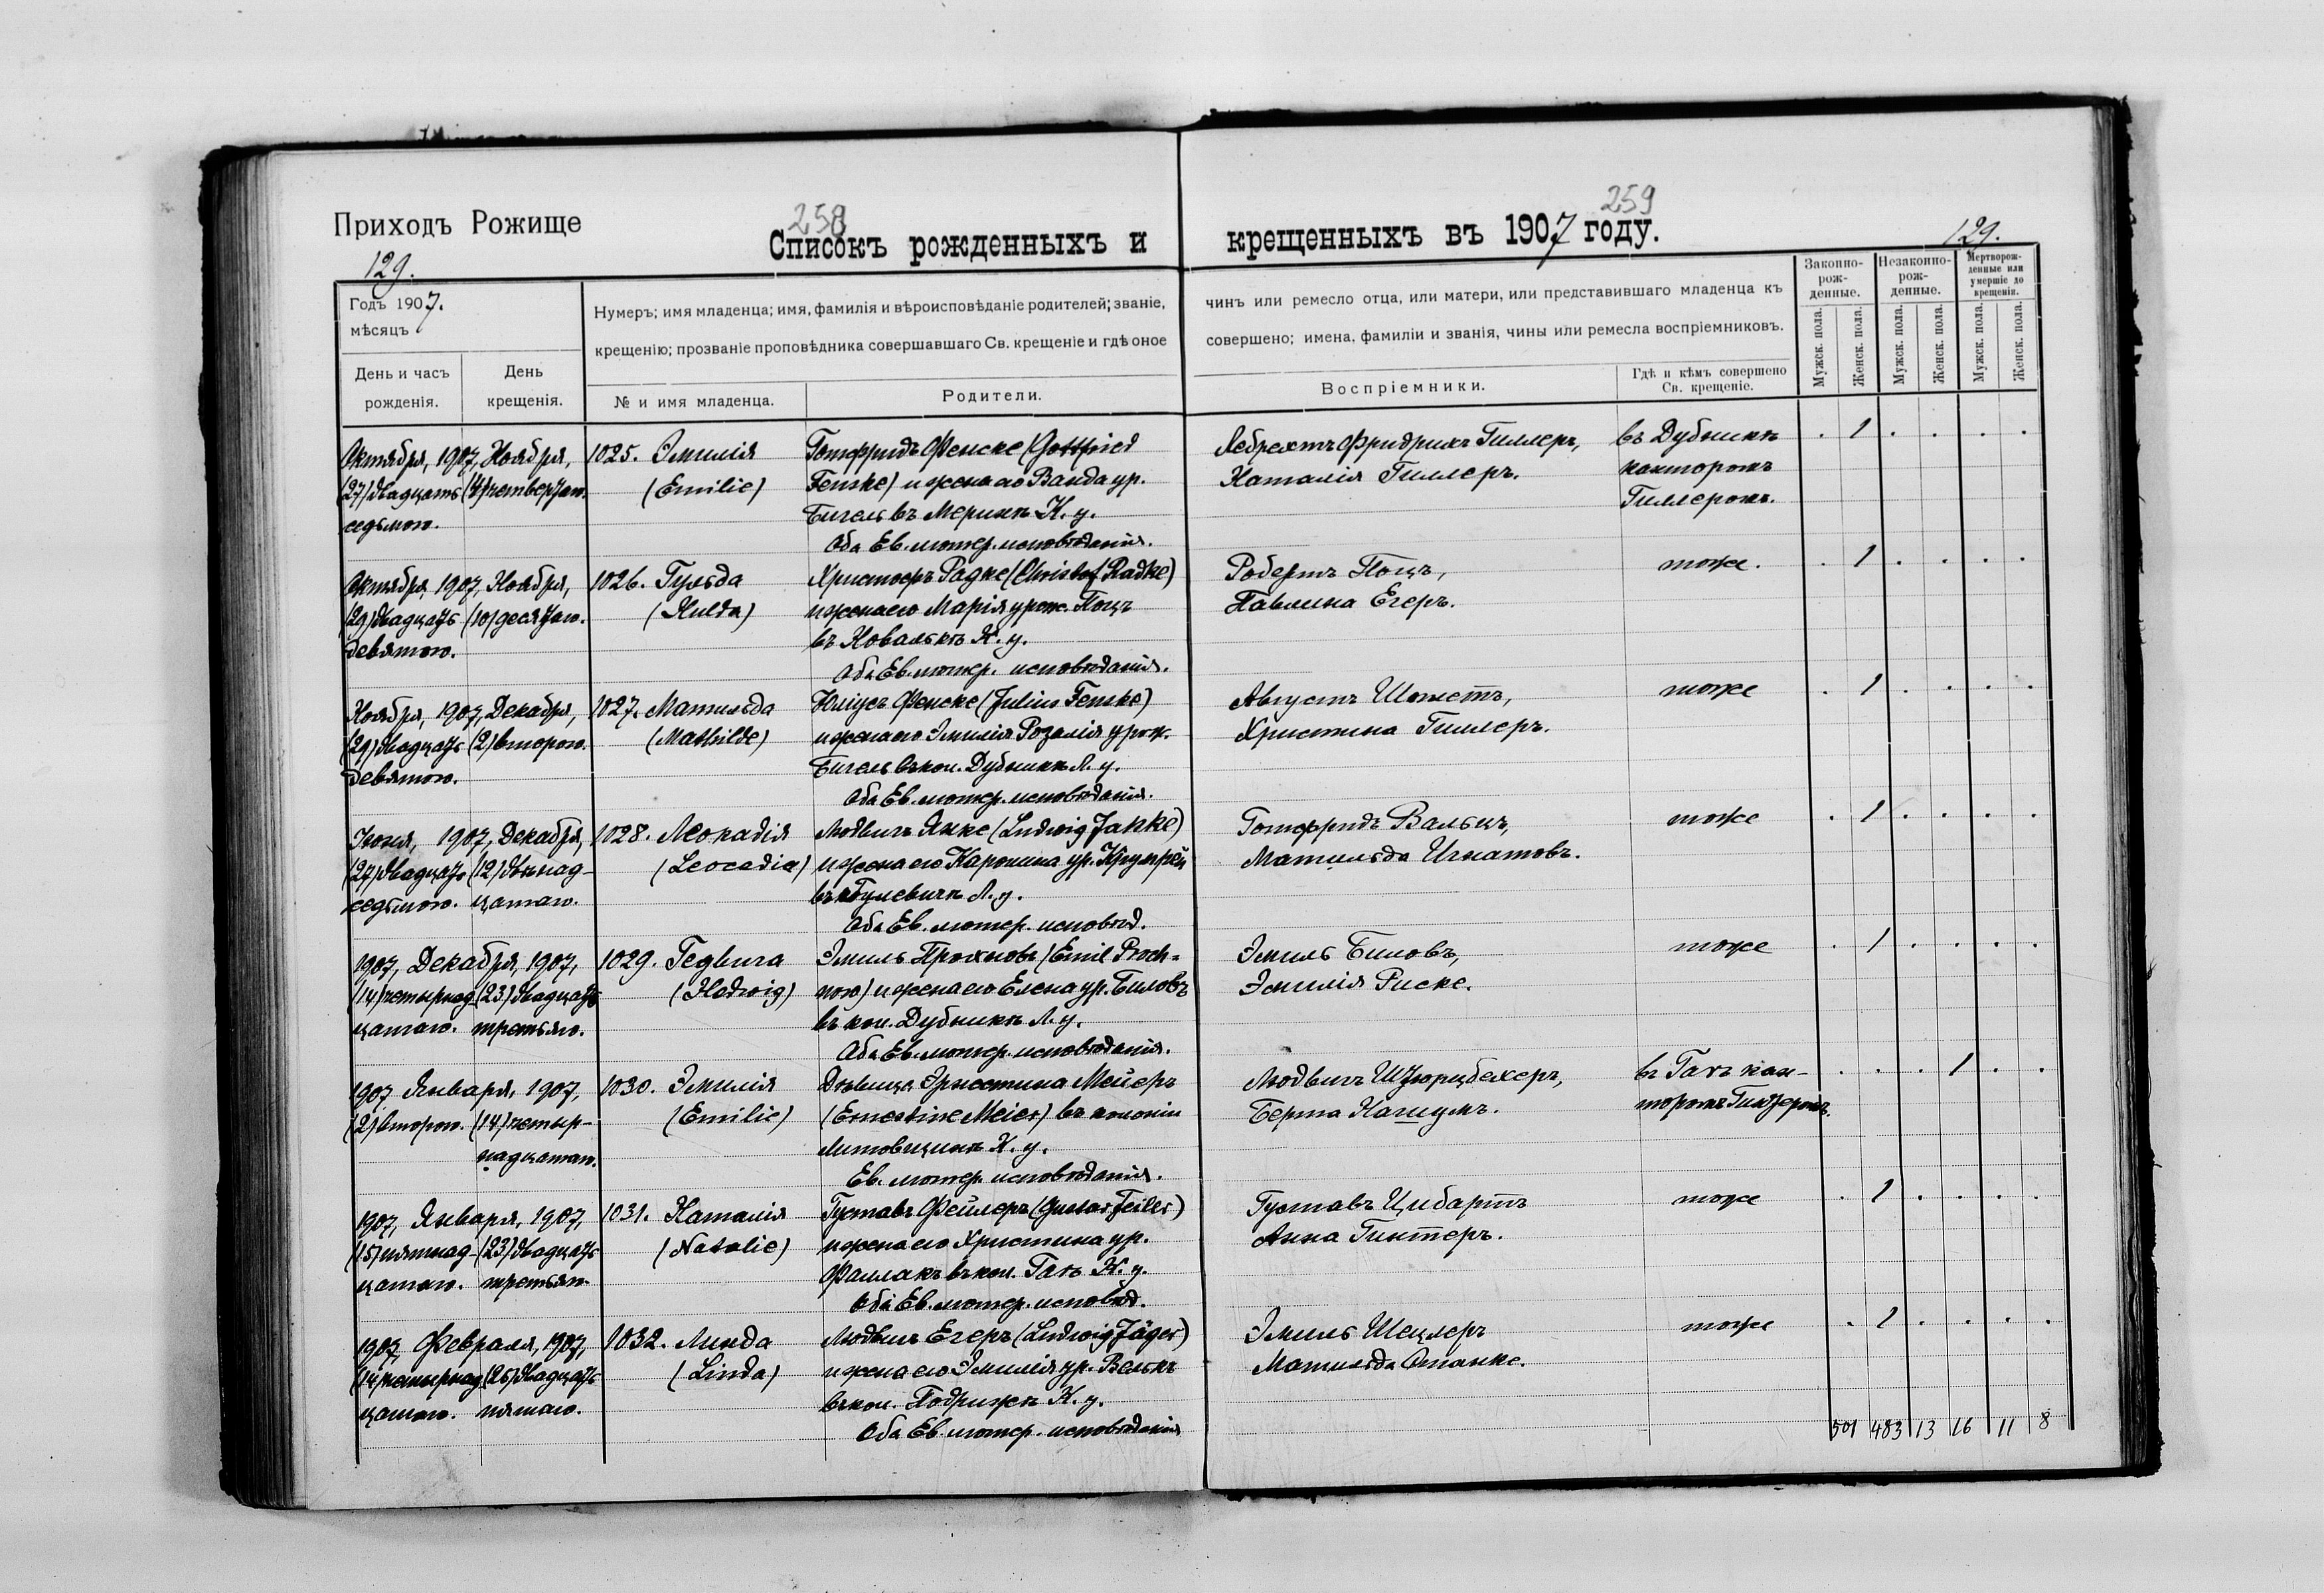 258
259
Приходъ Рожище
Списокъ рожденныхъ и
крещенныхъ въ 1907 году.
129.
129.
Годъ 1907.
мѣсяцъ
День и часъ рожденія.
День крещенія.
Нумеръ; имя младенца; имя, фамилія и вѣроисповѣданіе родителей; званіе,
крещенію; прозваніе проповѣдника совершавшаго Св. крещеніе и гдѣ оное
№ и имя младенца.
Родители.
чинъ или ремесло отца, или матери, или представившаго младенца къ
совершено; имена, фамиліи и званія, чины или ремесла воспріемниковъ.
Воспріемники.
Гдѣ и кѣмъ совершено
Св. крещеніе.
Законно-
рож-
денные.
Незаконно-
рож-
денные.
Мертворож-
денные или
умершіе до
крещенія.
Мужск. пола.
Женск. пола.
Мужск. пола.
Женск. пола.
Мужск. пола.
Женск. пола.
Октября, 1907, Ноября, 1025. Эмилія Готфридъ Фенске (Gottfried Лебрехтъ Фридрихъ Гиллеръ, въ Дубникѣ . 1 . . . .
(27) двадцать (4) четвертаго. (Emilie) Fenske) и жена его Ванда ур. Наталія Гиллеръ. канторомъ
седьмого. Бигель въ Меринѣ К. у. Гиллеромъ.
Оба Ев. лютер. исповѣданія.
Октября 1907, Ноября, 1026. Гульда Христофъ Радке (Christof Radke) Робертъ Поцъ, тоже. . 1 . . . .
(29) двадцать (10) десятаго. (Hulda) и жена его Марія урож. Поцъ Павлина Егеръ.
девятого. въ Ковалькѣ К. у.
Оба Ев. лютер. исповѣданія.
Ноября, 1907, Декабря, 1027. Матильда Юліусъ Фенске (Julius Fenske) Августъ тоже . 1 . . . .
(29) двадцать (2) второго. (Mathilde) и жена его Эмилія Розалія урож. Христина Гиллеръ.
девятого. Бигель въ кол. Дубникѣ Л. у.
Оба Ев. лютер. исповѣданія.
Іюня, 1907, Декабря, 1028. Леокадія Людвигъ Янке (Ludwig Janke) Готфридъ Вальцъ, тоже . 1 . . . .
(27) двадцать (12) двѣнад- (Leocadia) и жена его Каролина ур. Матильда Игнатовъ.
седьмого. цатаго. Л. у.
Оба Ев. лютер. исповѣд.
1907, Декабря, 1907, 1029. Гедвига Эмиль Прохновъ (Emil Proch= Эмиль Биловъ, тоже . 1 . . . .
(14) четырнад- (23) двадцать (Hedwig) now) и жена его Елена ур. Биловъ Эмилія Риске.
цатаго. третьяго. въ кол. Дубникѣ Л. у.
Оба Ев. лютер. исповѣданія.
1907 Января, 1907, 1030. Эмилія Дѣвица Эрнестина Мейеръ Людвигъ Штюрцбехеръ, въ Гатѣ кан- . . . 1 . .
(2) второго. (14) четыр- (Emilie) (Ernestine Meier) въ колоніи Берта торомъ Гинтеромъ.
надцатаго. К. у.
Ев. лютер. исповѣданія.
1907, Января, 1907, 1031. Наталія Густавъ Фейлеръ (Gustav Feiler) Густавъ Цибартъ тоже . 1 . . . .
(15) пятнад- (23) двадцать (Natalie) и жена его Христина ур. Анна Гинтеръ.
цатаго. третьяго. въ кол. Гатъ К. у.
Оба Ев. лютер. исповѣд.
1907, Февраля, 1907, 1032. Линда Людвигъ Егеръ (Ludwig Jäger) Эмиль тоже . 1 . . . .
(14) четырнад- (25) двадцать (Linda) и жена его Эмилія ур. Велькъ Матильда Станке.
цатаго. пятаго. въ кол. Подрижѣ К. у.
Оба Ев. лютер. исповѣданія
501 483 13 16 11 8